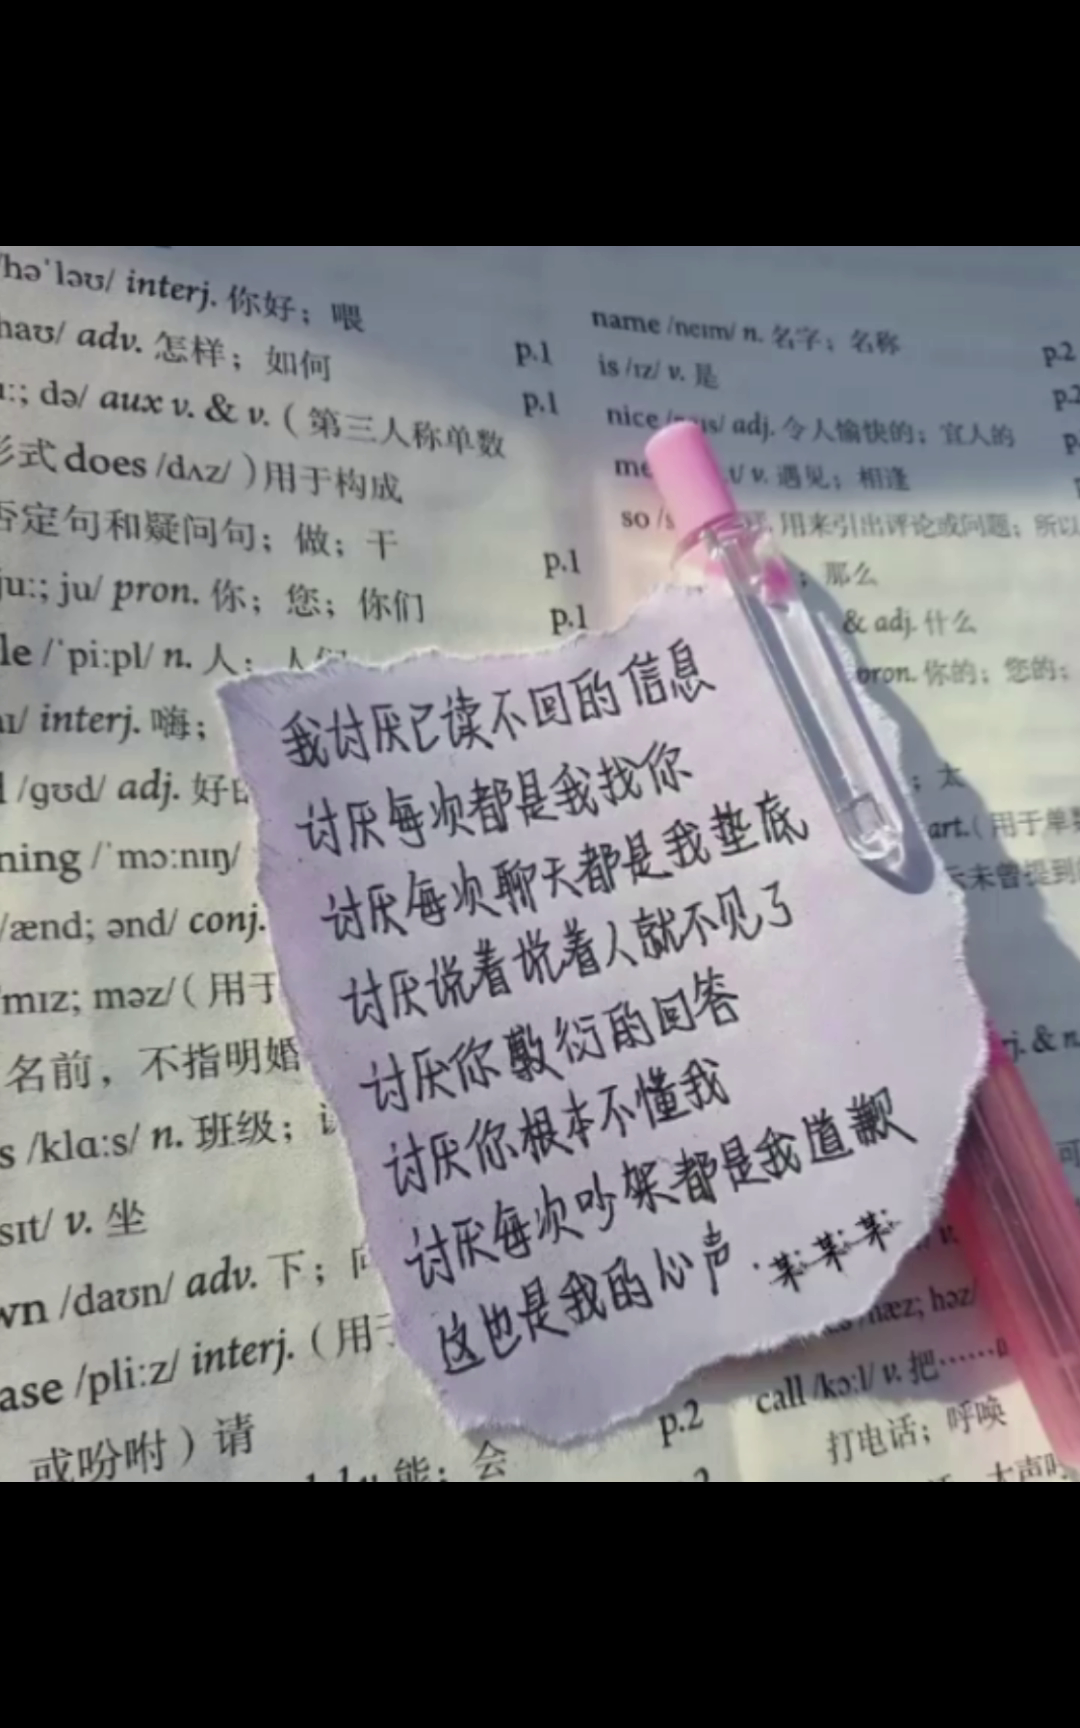 /həˈləʊ/ interj. 你好；喂
haʊ/ adv. 怎样；如何 p.1
də/ aux v. & v.（第三人称单数 p.1
形式 does /dʌz/ ）用于构成
否定句和疑问句；做；干 p.1
juː; ju/ pron. 你；您；你们 p.1
le /ˈpiːpl/ n. 人；人们
interj. 嗨；
/ɡʊd/ adj. 好
ning /ˈmɔːnɪŋ/
/ænd; ənd/ conj.
mɪz; məz/（用于
名前，不指明婚
s /klɑːs/ n. 班级；
sɪt/ v. 坐
wn /daʊn/ adv. 下；向
ase /pliːz/ interj.（用于
或吩咐）请
能；会
name /neɪm/ n. 名字；名称 p.2
is /ɪz/ v. 是
nice adj. 令人愉快的；宜人的
v. 遇见；相逢
so 用来引出评论或问题；所以
；那么
& adj. 什么
pron. 你的；您的；
；太
art.（用于单数
示未曾提到的
我讨厌已读不回的信息
讨厌每次都是我找你
讨厌每次聊天都是我垫底
讨厌说着说着人就不见了
讨厌你敷衍的回答
讨厌你根本不懂我
讨厌每次吵架都是我道歉
这也是我的心声·某某某
& n.
hæz; həz/
p.2 call /kɔːl/ v. 把……
打电话；呼唤
大声